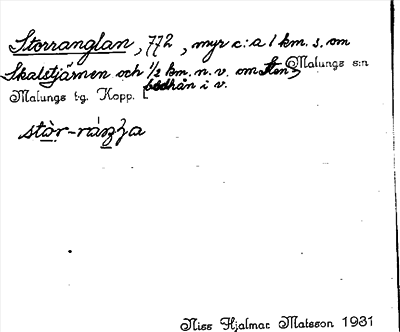 Storranglan, 772, myr c:a 1 km. s. om
Skalstjärnen och 1/2 km. n. v. om Sten- Malungs s:n
Malungs tg. Kopp. L bodhån i v.
stòr-ráŋ
Niss Hjalmar Matsson 1931